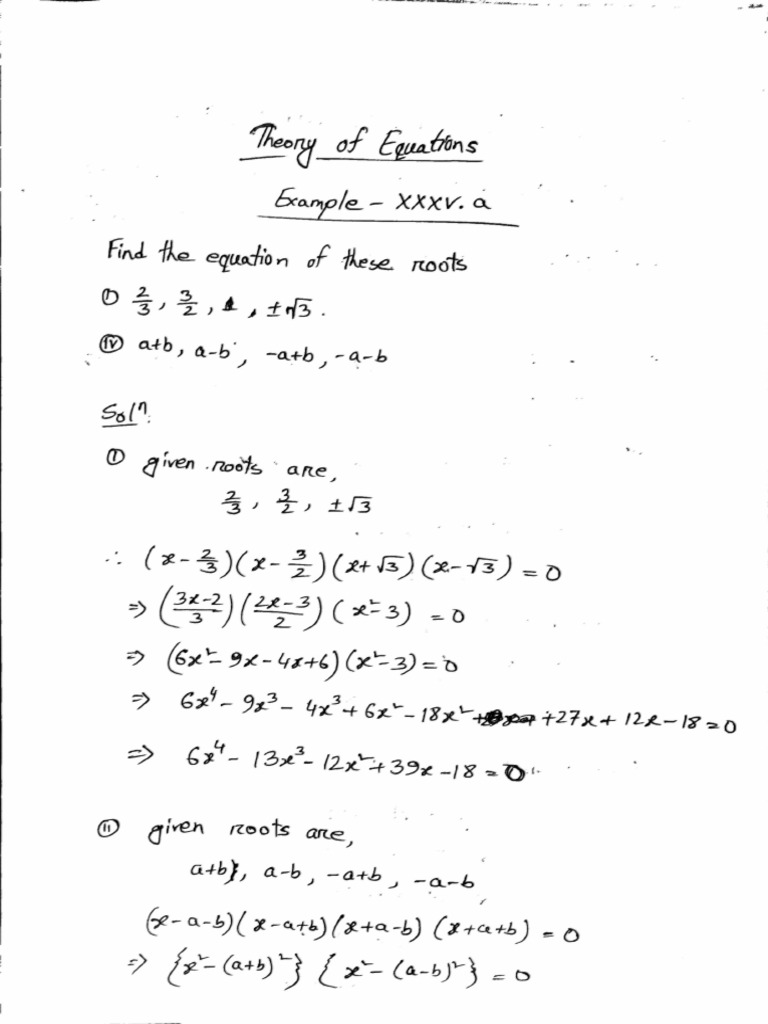 Theory of Equations
Example - XXXV. a
Find the equation of these roots
① 2/3, 3/2, ±√3.
ⓘⓥ a+b, a-b, -a+b, -a-b
Solⁿ.
① given roots are,
2/3, 3/2, ±√3
∴ (x - 2/3)(x - 3/2)(x+√3)(x-√3) = 0
⇒ ((3x-2)/3)((2x-3)/2)(x²-3) = 0
⇒ (6x²-9x-4x+6)(x²-3) = 0
⇒ 6x⁴ - 9x³ - 4x³ + 6x² - 18x² + 27x + 12x - 18 = 0
⇒ 6x⁴ - 13x³ - 12x² + 39x - 18 = 0
ⓘⓘ given roots are,
a+b, a-b, -a+b, -a-b
(x-a-b)(x-a+b)(x+a-b)(x+a+b) = 0
⇒ {x²-(a+b)²} {x²-(a-b)²} = 0